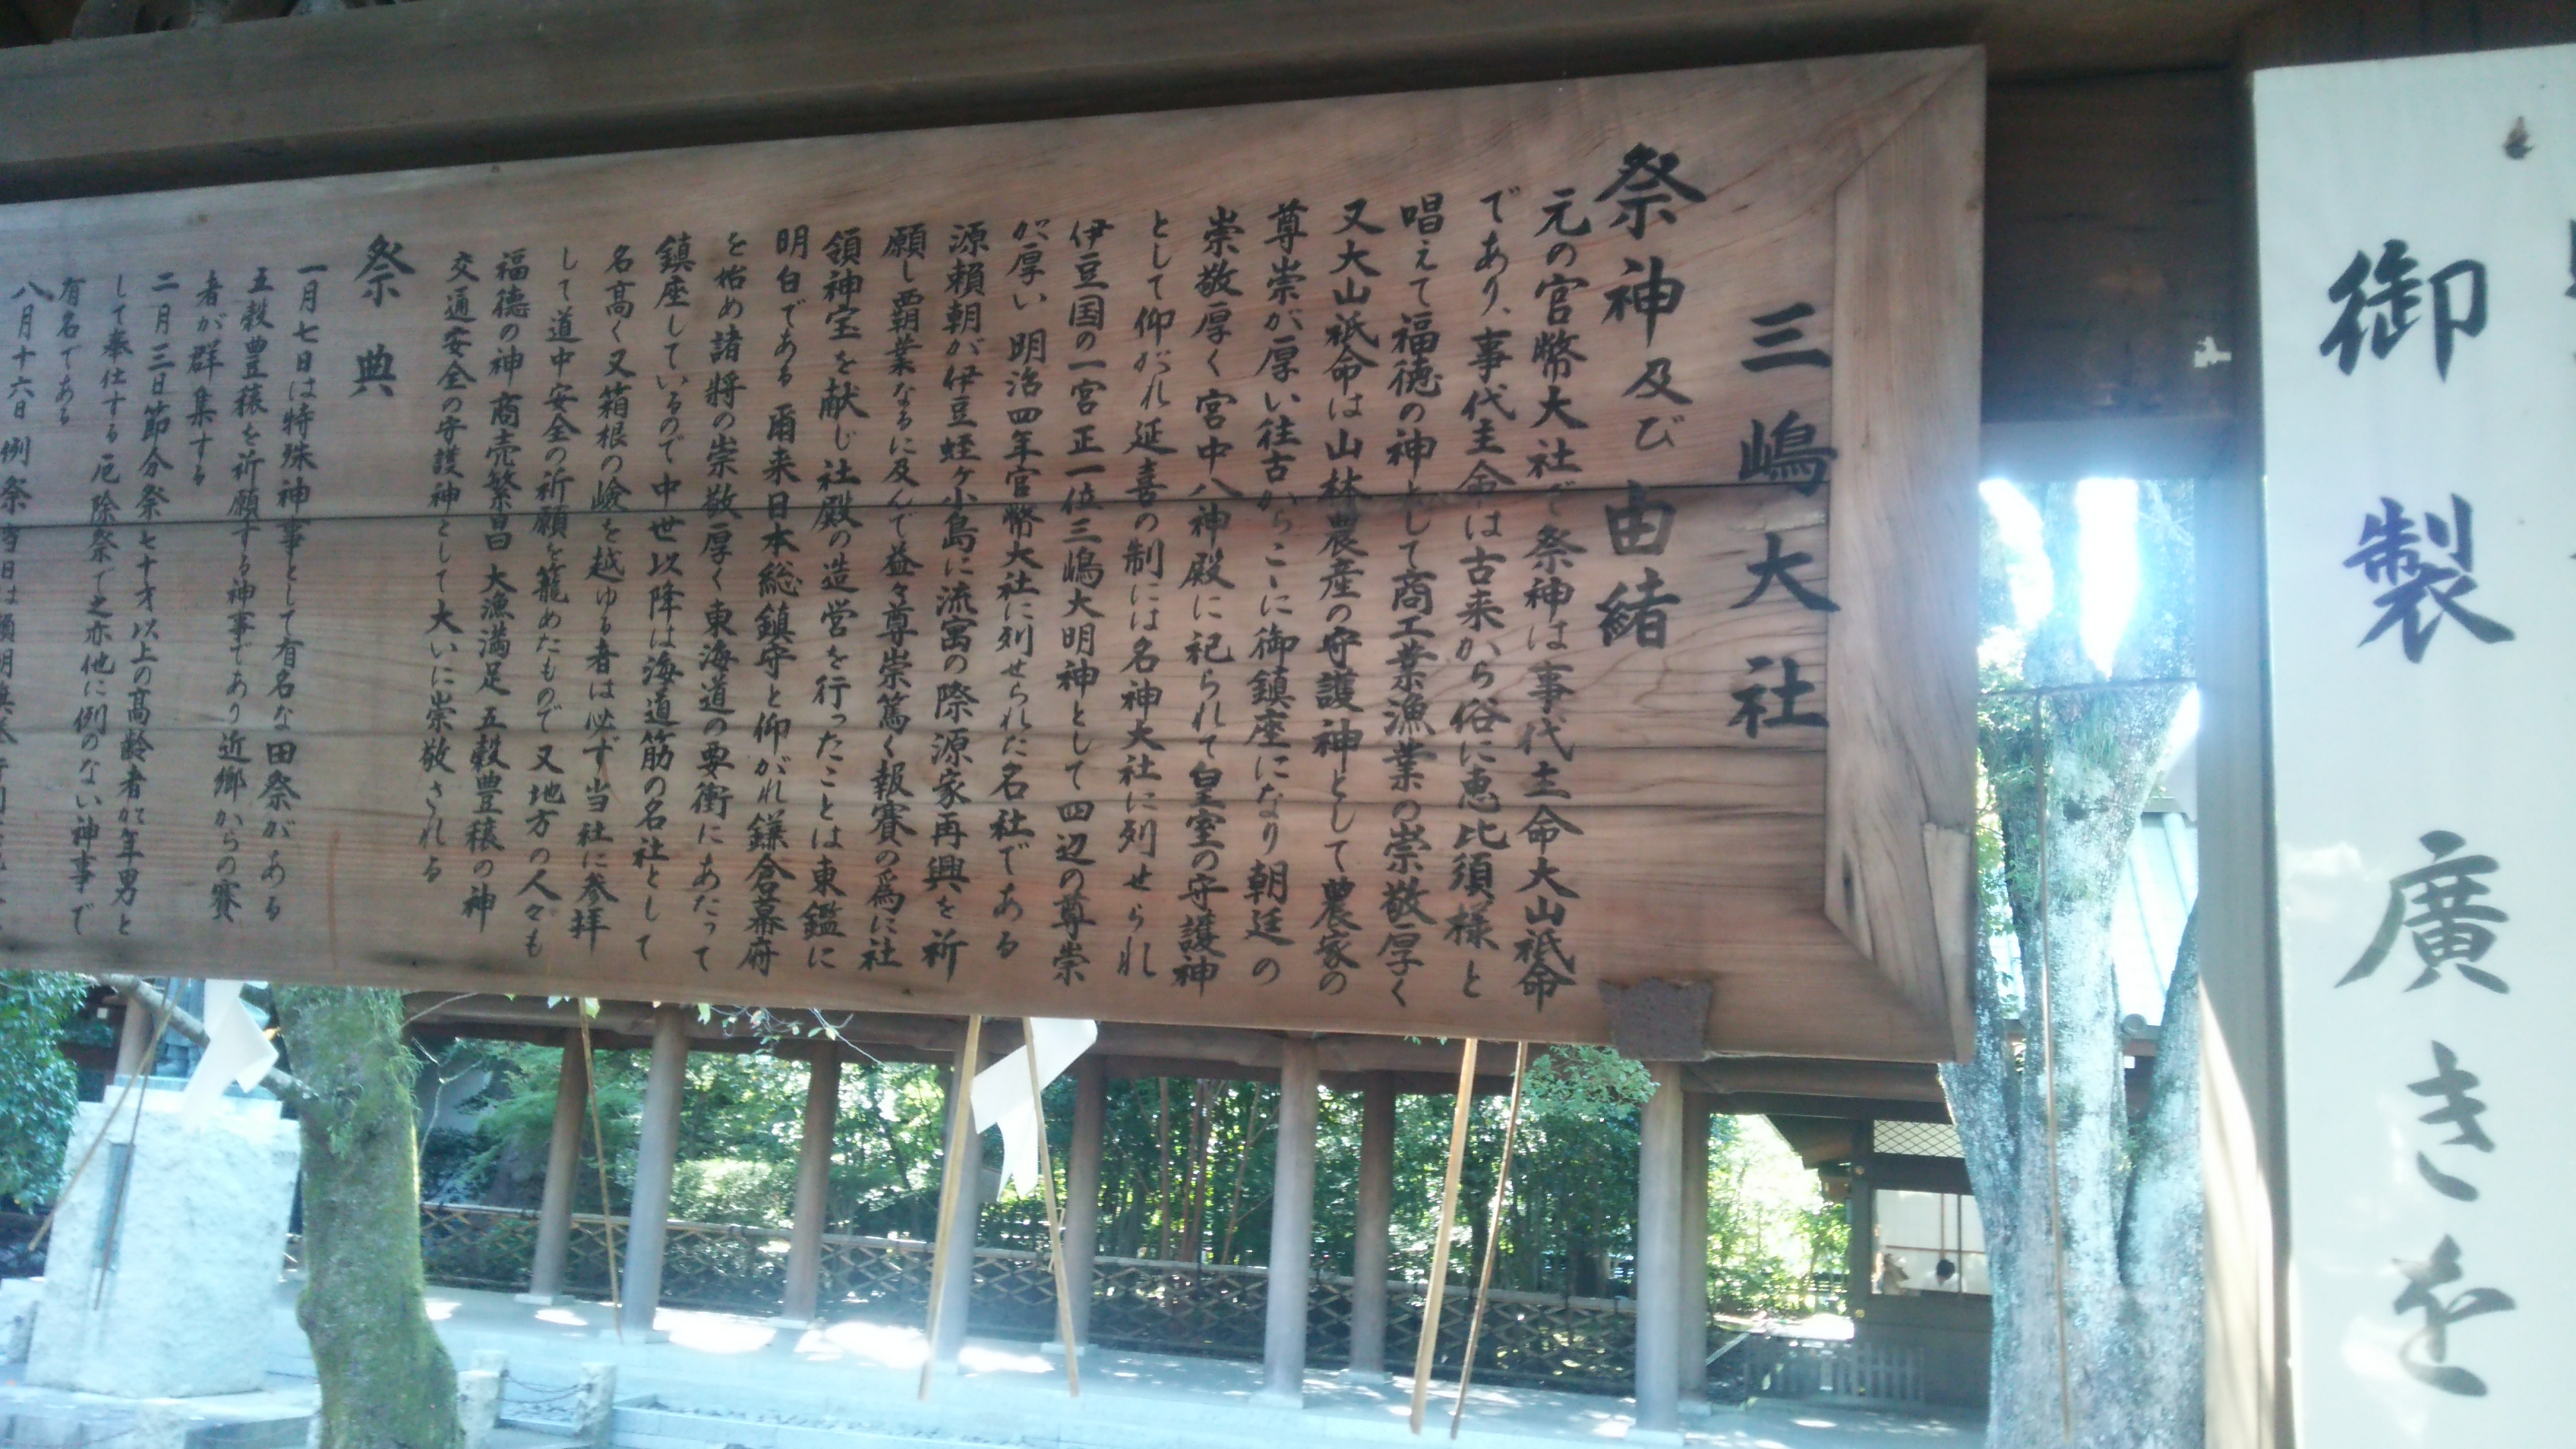 御製 廣きを
三嶋大社
祭神及び由緒
元の官幣大社で祭神は事代主命大山祇命
であり、事代主命は古来から俗に恵比須様と
唱えて福徳の神として商工業漁業の崇敬厚く
又大山祇命は山林農産の守護神として農家の
尊崇が厚い往古からこゝに御鎮座になり朝廷の
崇敬厚く宮中八神殿に祀られて皇室の守護神
として仰がれ延喜の制には名神大社に列せられ
伊豆国の一宮正一位三嶋大明神として四辺の尊崇
が厚い 明治四年官幣大社に列せられた名社である
源頼朝が伊豆蛭ヶ小島に流寓の際源家再興を祈
願し覇業なるに及んで益々尊崇篤く報賽の為に社
領神宝を献じ社殿の造営を行ったことは東鑑に
明白である 爾来日本総鎮守と仰がれ鎌倉幕府
を始め諸将の崇敬厚く東海道の要衝にあたって
鎮座しているので中世以降は海道筋の名社として
名高く又箱根の嶮を越ゆる者は必ず当社に参拝
して道中安全の祈願を籠めたもので又地方の人々も
福徳の神 商売繁昌 大漁満足 五穀豊穣の神
交通安全の守護神として大いに崇敬される
祭典
一月七日は特殊神事として有名な田祭がある
五穀豊穣を祈願する神事であり近郷からの賽
者が群集する
二月三日節分祭七十才以上の高齢者が年男と
して奉仕する厄除祭で之亦他に例のない神事で
有名である
八月十六日例祭当日は